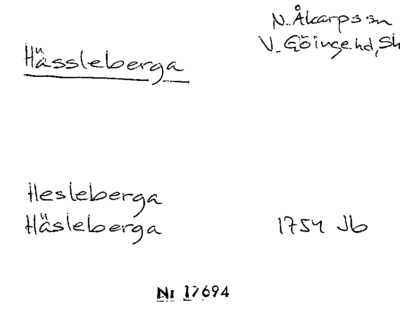 N. Åkarps sn
V. Göinge hd, Sk
Hässleberga
Hesleberga
Häsleberga 1754 Jb
Nr 17694